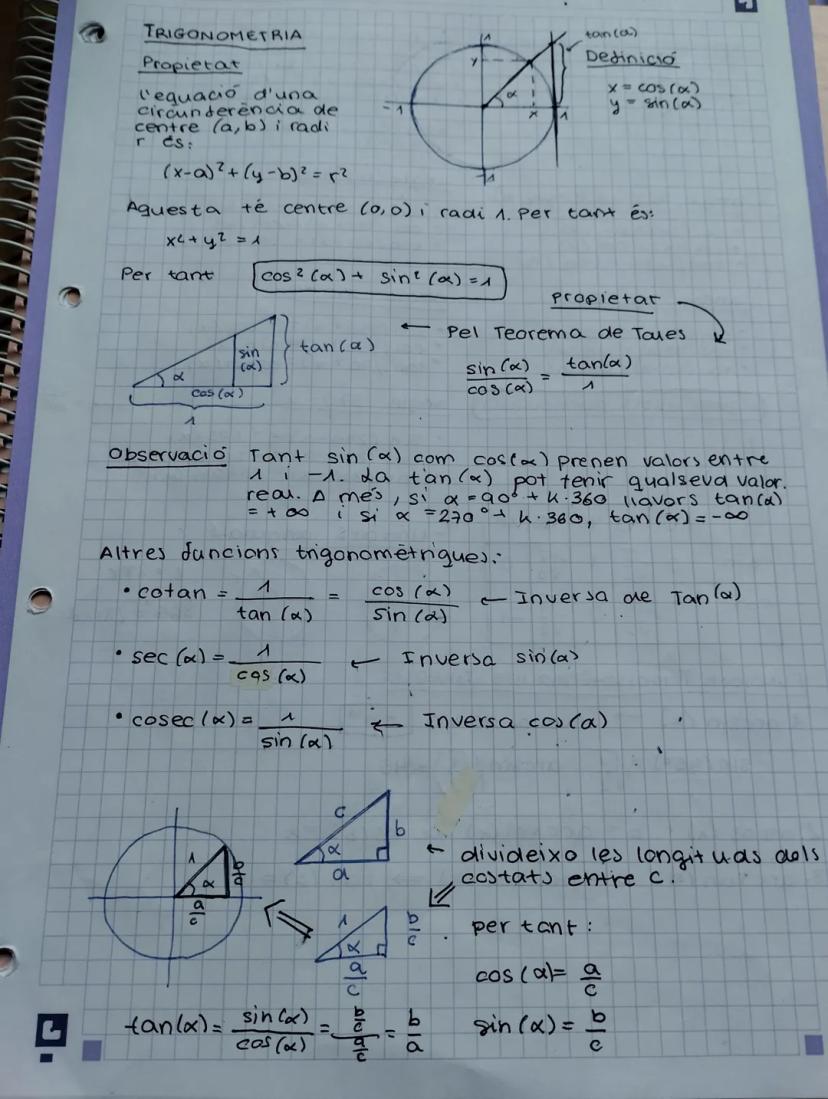 TRIGONOMETRIA
Propietat
L'equació d'una
circunderència de
centre (a,b) i radi
r és:
(x-a)²+(y-b)²=r²
1
y
α
-1
x
1
-1
tan(α)
Definició
x = cos(α)
y = sin(α)
Aquesta té centre (0,0) i radi 1. Per tant és:
x²+y²=1
Per tant cos²(α)+ sin²(α)=1
Propietat
α
sin
(α)
cos(α)
1
tan(α)
← Pel Teorema de Tales
sin(α)/cos(α) = tan(α)/1
Observació Tant sin(α) com cos(α) prenen valors entre
1 i -1. La tan(α) pot tenir qualseva valor.
real. A més, si α=90°+k·360 llavors tan(α)
=+∞ i si α=270°+k·360, tan(α)=-∞
Altres funcions trigonomètriques:
• cotan = 1/tan(α) = cos(α)/sin(α) ← Inversa de Tan(α)
• sec(α)= 1/cos(α) ← Inversa sin(α)
• cosec(α)= 1/sin(α) ← Inversa cos(α)
c
b
α
a
← divideixo les longituds dels
costats entre c.
1
α
a/c
1
α
b/c
a/c
per tant:
cos(α)= a/c
tan(α)= sin(α)/cos(α) = (b/c)/(a/c) = b/a
sin(α)= b/c